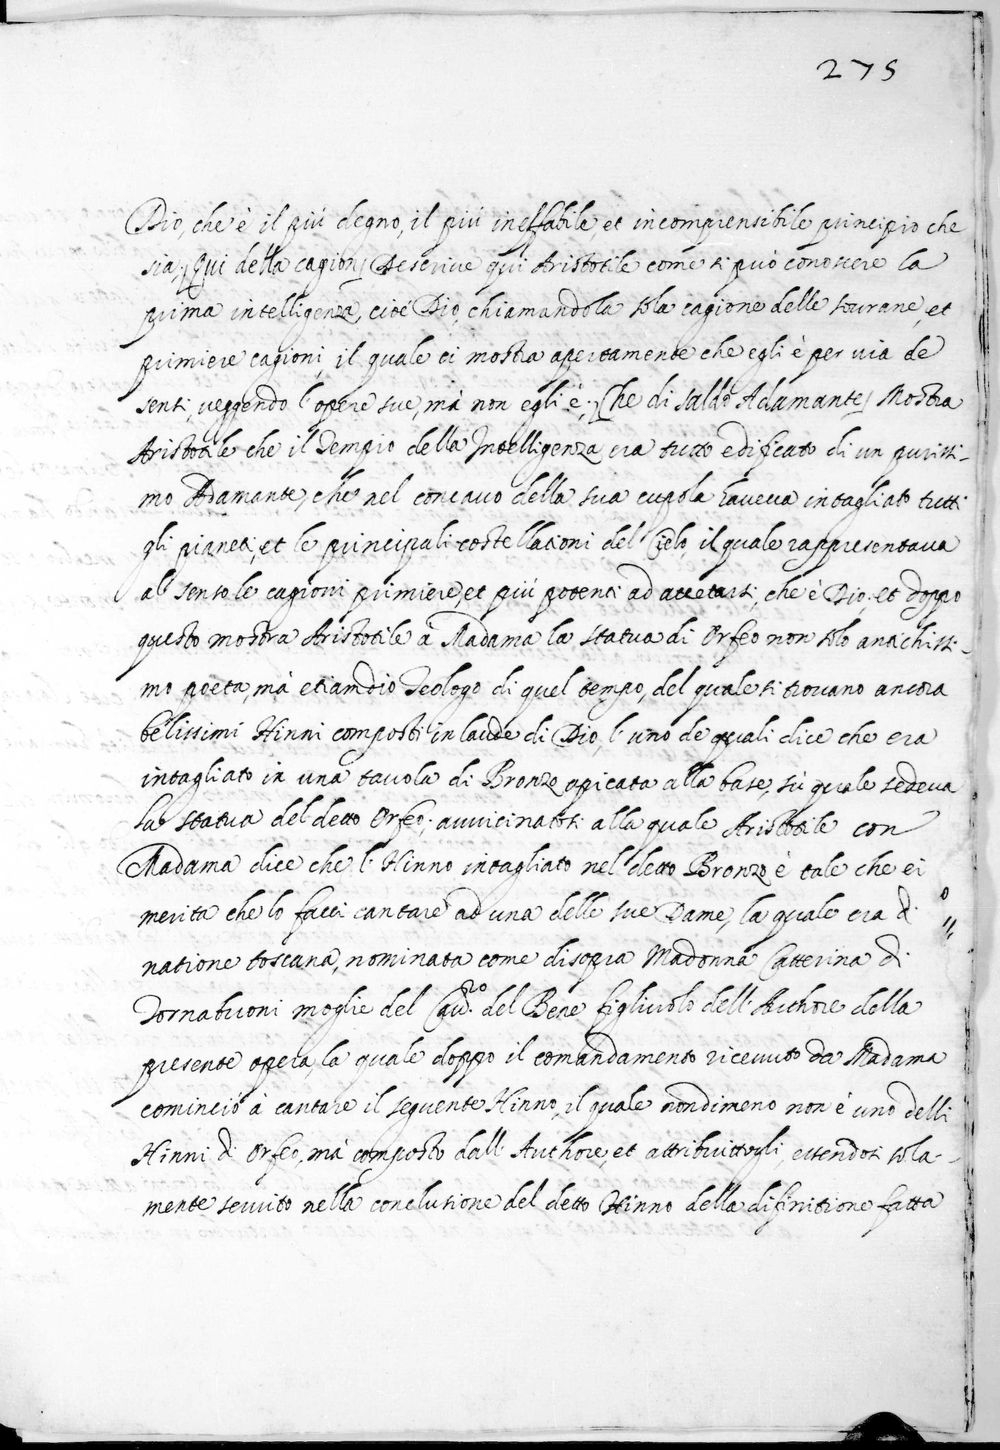 275
Dio, che è il più degno, il più ineffabile et incomprensibile principio che
sia. [Qui della cagion] Descrive qui Aristotile come si può conoscere la
prima intelligenza, cioè Dio, chiamandola sola cagione delle sourane, et
primiere cagioni, il quale ci mostra apertamente che egli è per uia de
sensi, ueggendo l'opere sue, mà non egli è; [Che di saldo Adamante] Mostra
Aristotile che il Tempio della Intelligenza era tutto edificato di un purissi-
mo Adamante, che nel concauo della sua cupola haueua intagliato tutti
gli pianeti, et le principali costellationi del Cielo, il quale rappresentaua
al senso le cagioni primiere, et più potenti ad, che è Dio, et doppo
questo mostra Aristotile a Madama la statua di Orfeo non solo antichissi-
mo poeta, mà etiamdio Teologo di quel tempo, del quale si trouano ancora
bellissimi Hinni composti in laude di Dio, l'uno de quali dice che era
intagliato in una tauola di Bronzo apicata alla base, sù quale sedeua
la statua del detto Orfeo; auuicinatosi alla quale Aristotile con
Madama dice che l'Hinno intagliato nel detto Bronzo è tale che ei
merita che lo facci cantare ad una delle sue Dame, la quale era di
natione toscana, nominata come disopra Madonna Catterina di
Tornabuoni moglie del Cau.ro del Bene figliuolo dell'Authore della
presente opera, la quale doppo il comandamento riceuuto da Madama
cominciò à cantare il seguente Hinno, il quale nondimeno non è uno delli
Hinni di Orfeo, mà composto dall'Authore, et attribuittogli, essendosi sola-
mente seruito nella conclusione del detto Hinno della difinitione fatta